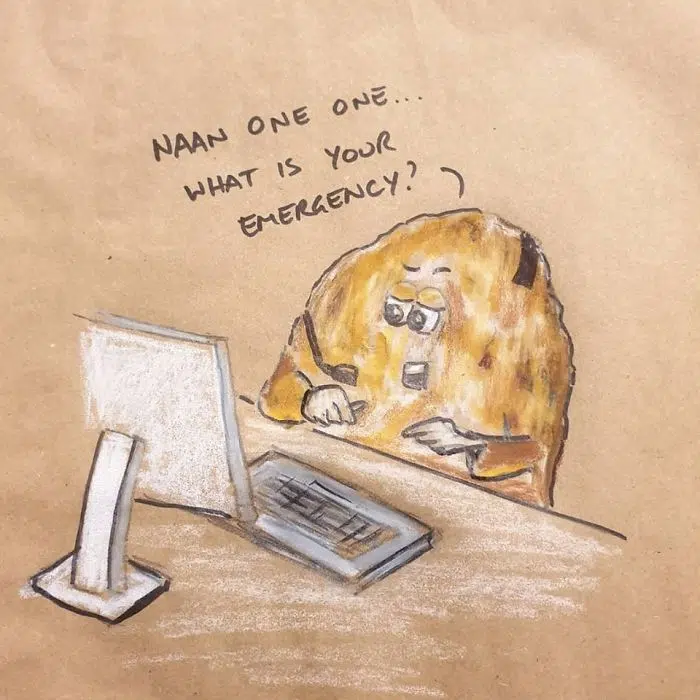 NAAN ONE ONE...
WHAT IS YOUR
EMERGENCY?